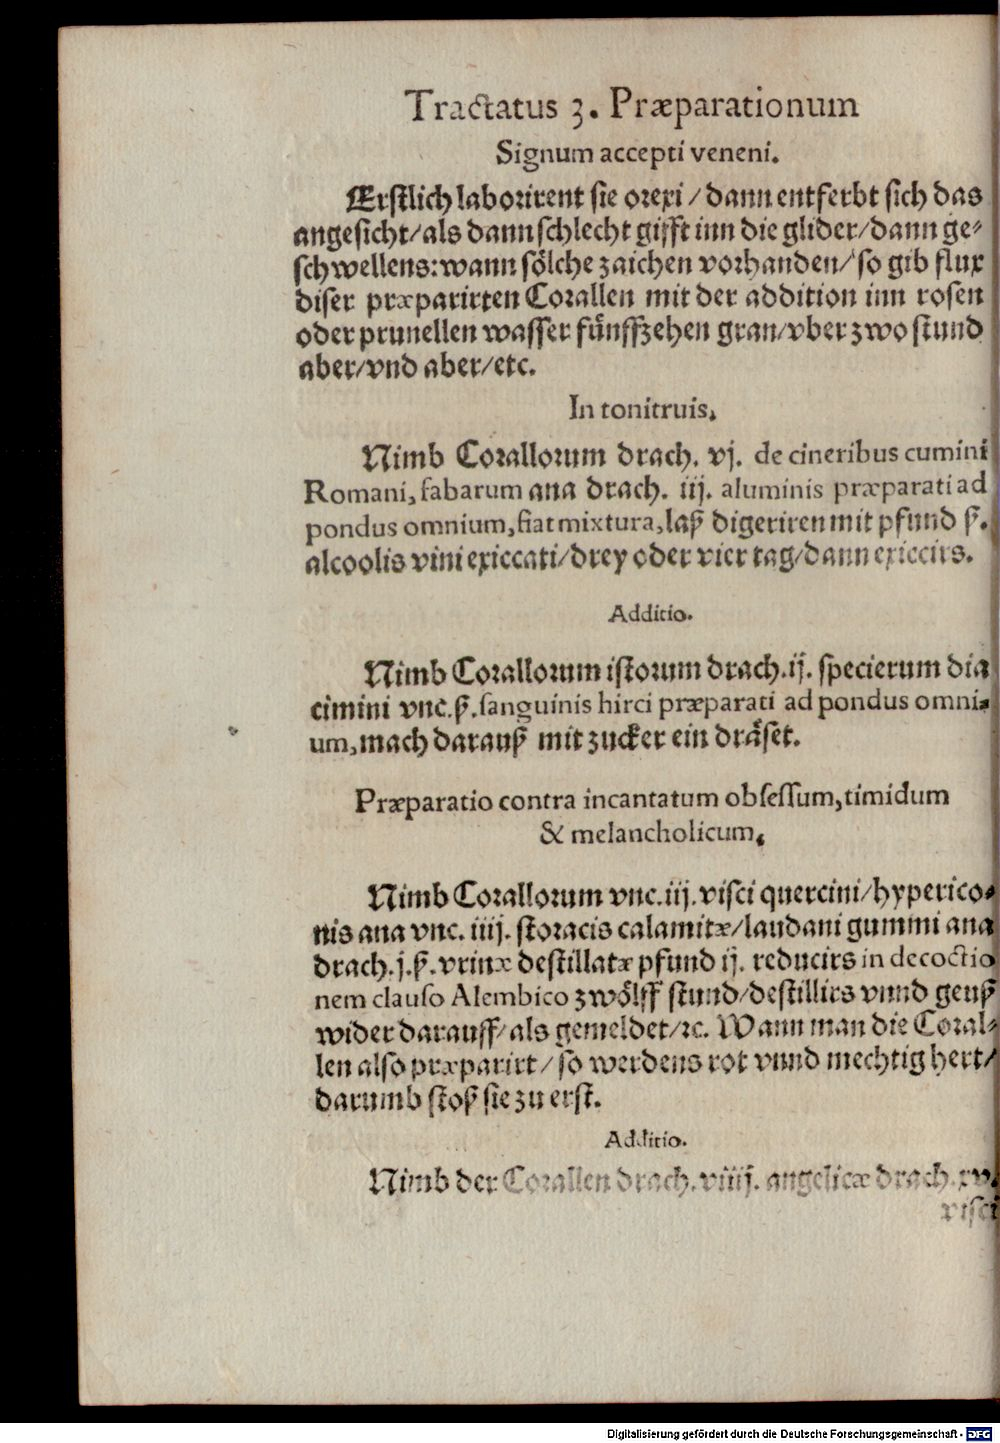 Tractatus 3. Præparationum
Signum accepti veneni.
Erstlich laborirent sie orexi / dann entferbt sich das
angesicht/als dann schlecht gifft inn die glider/dann ge⸗
schwellens:wann sölche zaichen vorhanden/so gib flux
diser præparirten Corallen mit der addition inn rosen
oder prunellen wasser fünffzehen gran/vber zwo stund
aber/vnd aber/etc.
In tonitruis.
Nimb Corallorum drach. vj. de cineribus cumini
Romani, fabarum ana drach. iij. aluminis præparati ad
pondus omnium, fiat mixtura, laß digeriren mit pfund ß.
alcoolis vini exiccati/drey oder vier tag/dann exiccirs.
Additio.
Nimb Corallorum istorum drach.ij. specierum dia
cimini vnc.ß.sanguinis hirci præparati ad pondus omni⸗
um,mach darauß mit zucker ein dräset.
Præparatio contra incantatum obsessum,timidum
& melancholicum.
Nimb Corallorum vnc.iij.visci quercini/hyperico⸗
nis ana vnc. iiij. storacis calamitæ/laudani gummi ana
drach.j.ß.vrinæ destillatæ pfund ij. reducirs in decoctio
nem clauso Alembico zwölff stund/destillirs vnnd geuß
wider darauff/als gemeldet/ꝛc. Wann man die Coral⸗
len also præparirt/so werdens rot vnnd mechtig hert/
darumb stoß sie zu erst.
Additio.
Nimb der Corallen drach.viiij. angelicæ drach.xv.
visci
Digitalisierung gefördert durch die Deutsche Forschungsgemeinschaft - DFG